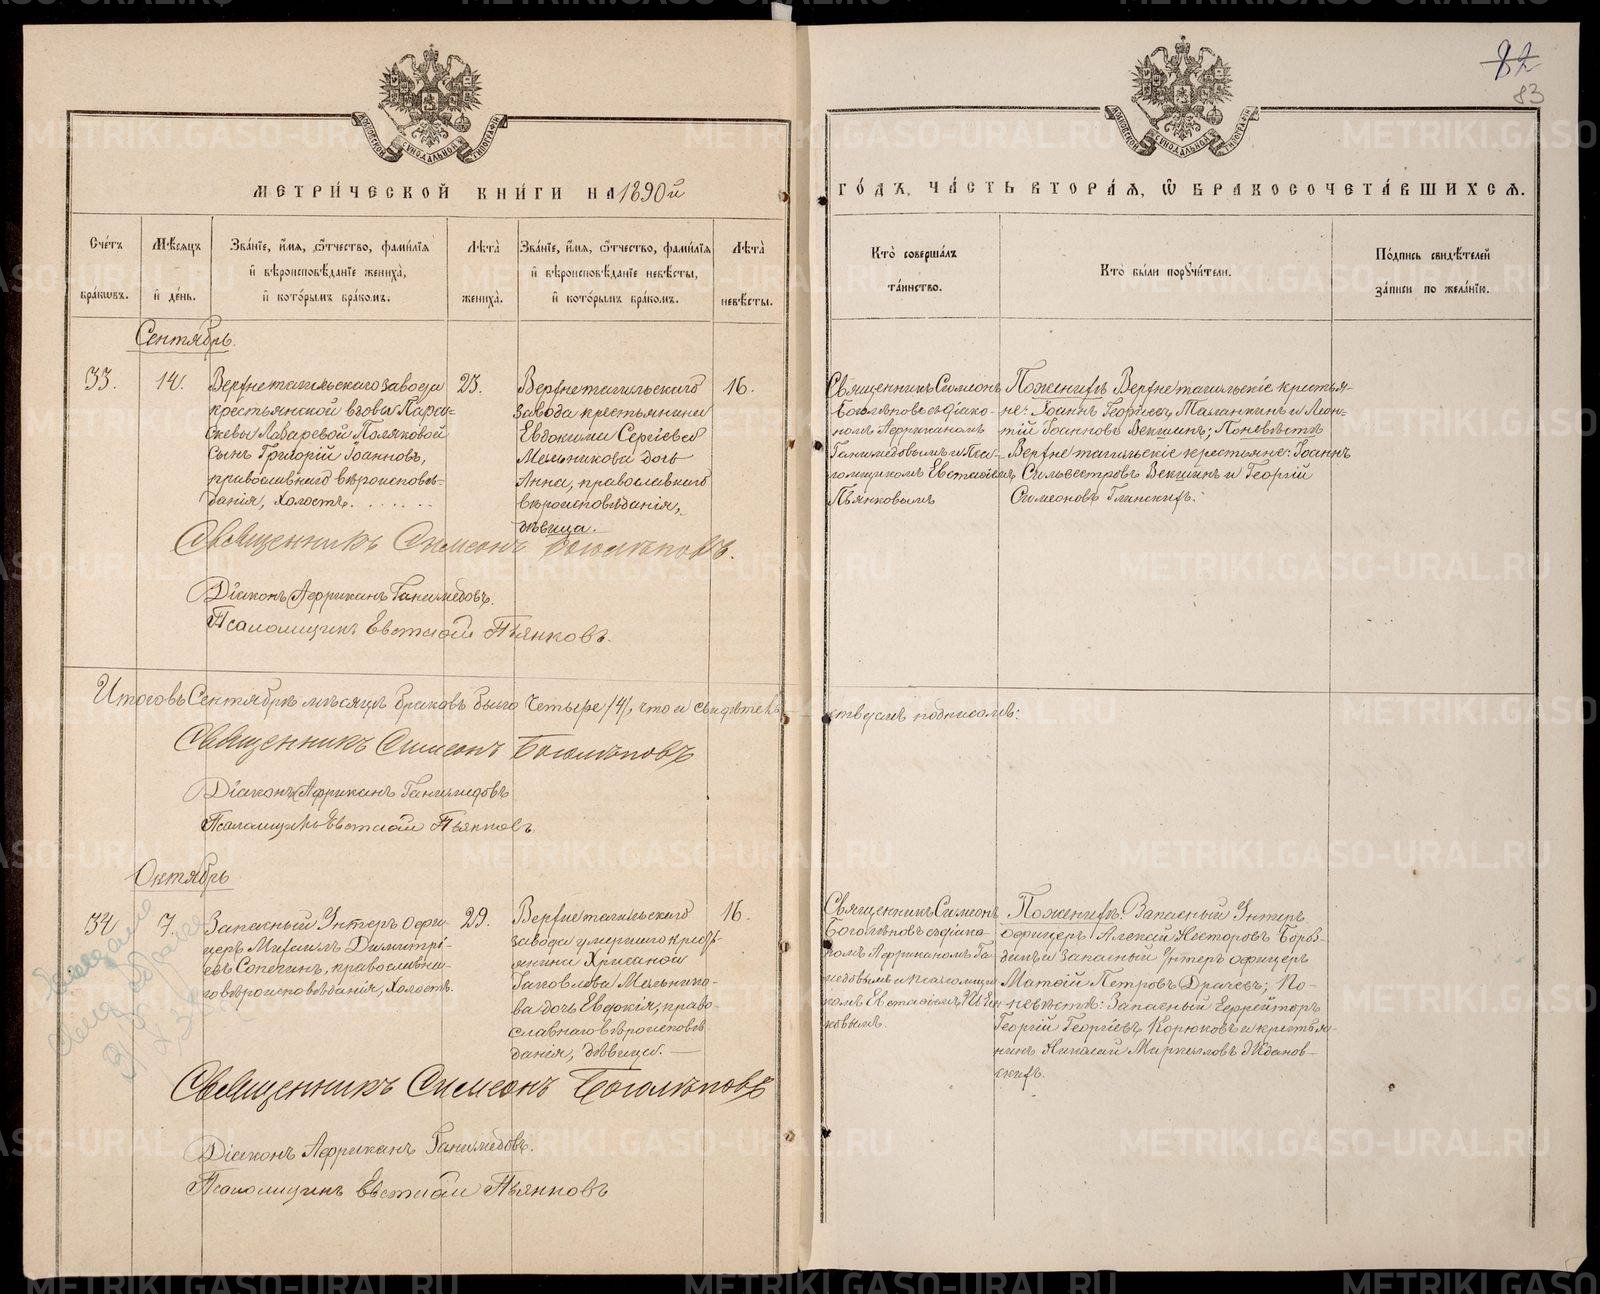 МОСКОВСКОЙ СѴНОДАЛЬНОЙ ТИПОГРАФІИ
МЕТРИЧЕСКОЙ КНИГИ НА 1890й
Счетъ браковъ.
Мѣсяцъ и день.
Званіе, имя, отчество, фамилія
и вѣроисповѣданіе жениха,
и которымъ бракомъ.
Лѣта
жениха.
Званіе, имя, отчество, фамилія
и вѣроисповѣданіе невѣсты,
и которымъ бракомъ.
Лѣта
невѣсты.
Сентябрь.
33.
14.
Верхнетагильскаго завода
крестьянской вдовы Пара-
скевы Лазаревой Поляковой
сынъ Григорій Іоанновъ,
православнаго вѣроисповѣ-
данія, холостъ.......
23.
Верхнетагильскаго
завода крестьянина
Евдокима Сергіева
Мельникова дочь
Анна, православнаго
вѣроисповѣданія,
дѣвица.
16.
Священникъ Симеонъ Боголѣповъ.
Діаконъ Африканъ Ганимедовъ.
Псаломщикъ Евстафій Пьянковъ.
Итого въ Сентябрѣ мѣсяцѣ браковъ было четыре /4/, что и свидѣтель-
Священникъ Симеонъ Боголѣповъ
Діаконъ Африканъ Ганимедовъ
Псаломщикъ Евстафій Пьянковъ.
Октябрь
34
7.
Запасный Унтеръ офи-
церъ Михаилъ Димитрі-
евъ Сопегинъ, православна-
го вѣроисповѣданія, холостъ.
29.
Верхнетагильскаго
завода умершаго кресть-
янина Хрисанфа
Мельнико-
ва дочь Евдокія, право-
славнаго вѣроисповѣ
данія, дѣвица. —
16.
Священникъ Симеонъ Боголѣповъ
Діаконъ Африканъ Ганимедовъ.
Псаломщикъ Евстафій Пьянковъ
82
83
МОСКОВСКОЙ СѴНОДАЛЬНОЙ ТИПОГРАФІИ
ГОДЪ, ЧАСТЬ ВТОРАЯ, Ѡ БРАКОСОЧЕТАВШИХСЯ.
Кто совершалъ
таинство.
Кто были поручители.
Подпись свидѣтелей
записи по желанію.
Священникъ Симеонъ
Боголѣповъ съ діако-
номъ Африканомъ
Ганимедовымъ и пса-
ломщикомъ Евстафіемъ
Пьянковымъ
По женихѣ Верхнетагильскіе крестья-
не: Іоаннъ Георгіевъ Таланкинъ и Леон-
тій Іоанновъ Векшинъ; По невѣстѣ
Верхнетагильскіе крестьяне: Іоаннъ
Сильвестровъ Векшинъ и Георгій
Симеоновъ Глинскихъ.
ствуемъ подписомъ:
Священникъ Симеонъ
Боголѣповъ съ діако-
номъ Африканомъ Га-
нимедовымъ и псаломщи-
комъ Евстафіемъ Пьян-
ковымъ.
По женихѣ: Запасный Унтеръ
офицеръ Алексѣй Несторовъ Боро-
динъ и Запасный Унтеръ офицеръ
Матѳій Петровъ Драчевъ; По-
невѣстѣ: Запасный Ефрейторъ
Георгій Георгіевъ Корюковъ и крестья-
нинъ Николай Маркелловъ Жданов-
скихъ.
METRIKI.GASO-URAL.RU